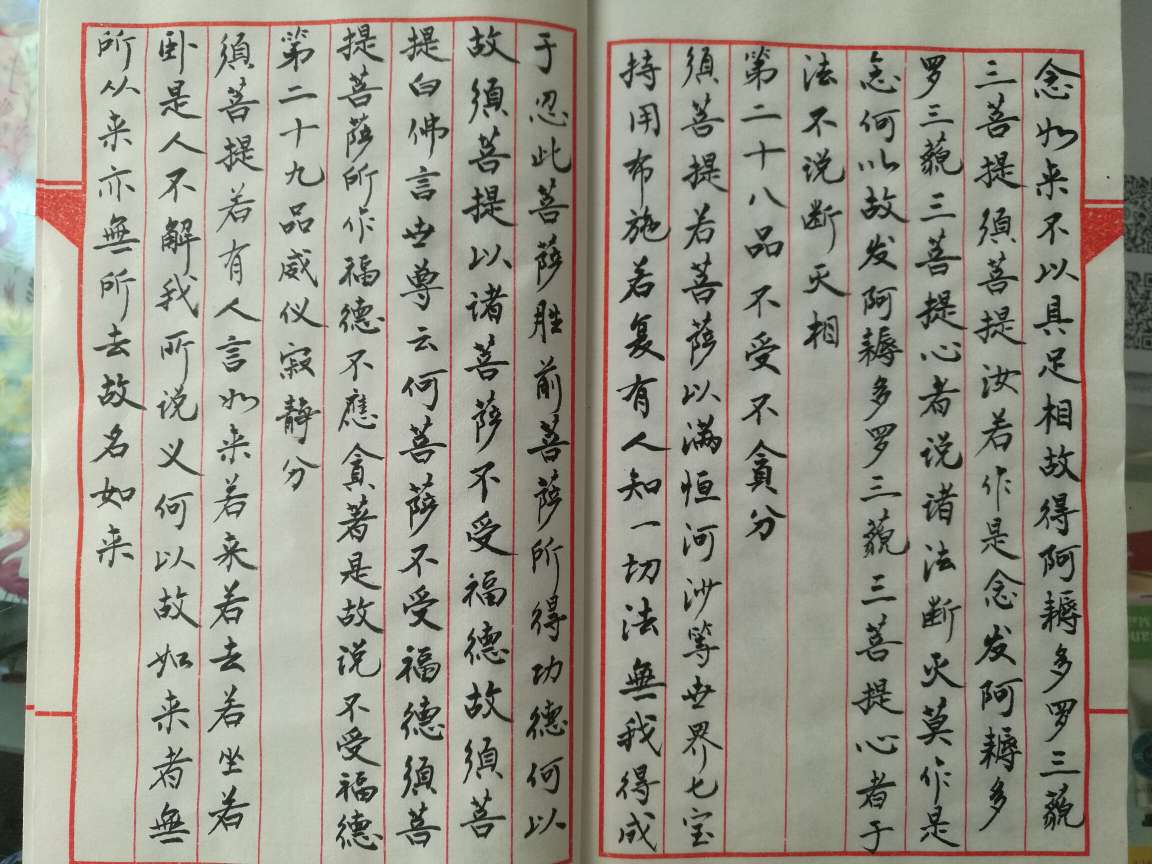 念如来不以具足相故得阿耨多罗三藐
三菩提须菩提汝若作是念发阿耨多
罗三藐三菩提心者说诸法断灭莫作是
念何以故发阿耨多罗三藐三菩提心者于
法不说断灭相
第二十八品不受不貪分
须菩提若菩萨以满恒河沙等世界七宝
持用布施若复有人知一切法無我得成
于忍此菩萨胜前菩萨所得功德何以
故须菩提以诸菩萨不受福德故须菩
提白佛言世尊云何菩萨不受福德须菩
提菩萨所作福德不應貪著是故说不受福德
第二十九品威仪寂静分
须菩提若有人言如来若来若去若坐若
卧是人不解我所说义何以故如来者無
所从来亦無所去故名如来